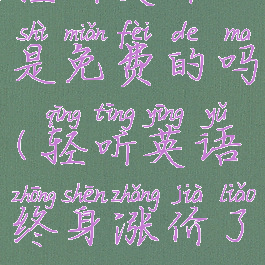 shì miǎn fèi de ma
是免费的吗
qīng tīng yīng yǔ
(轻听英语
zhōng shēn zhǎng jià liǎo
终身涨价了